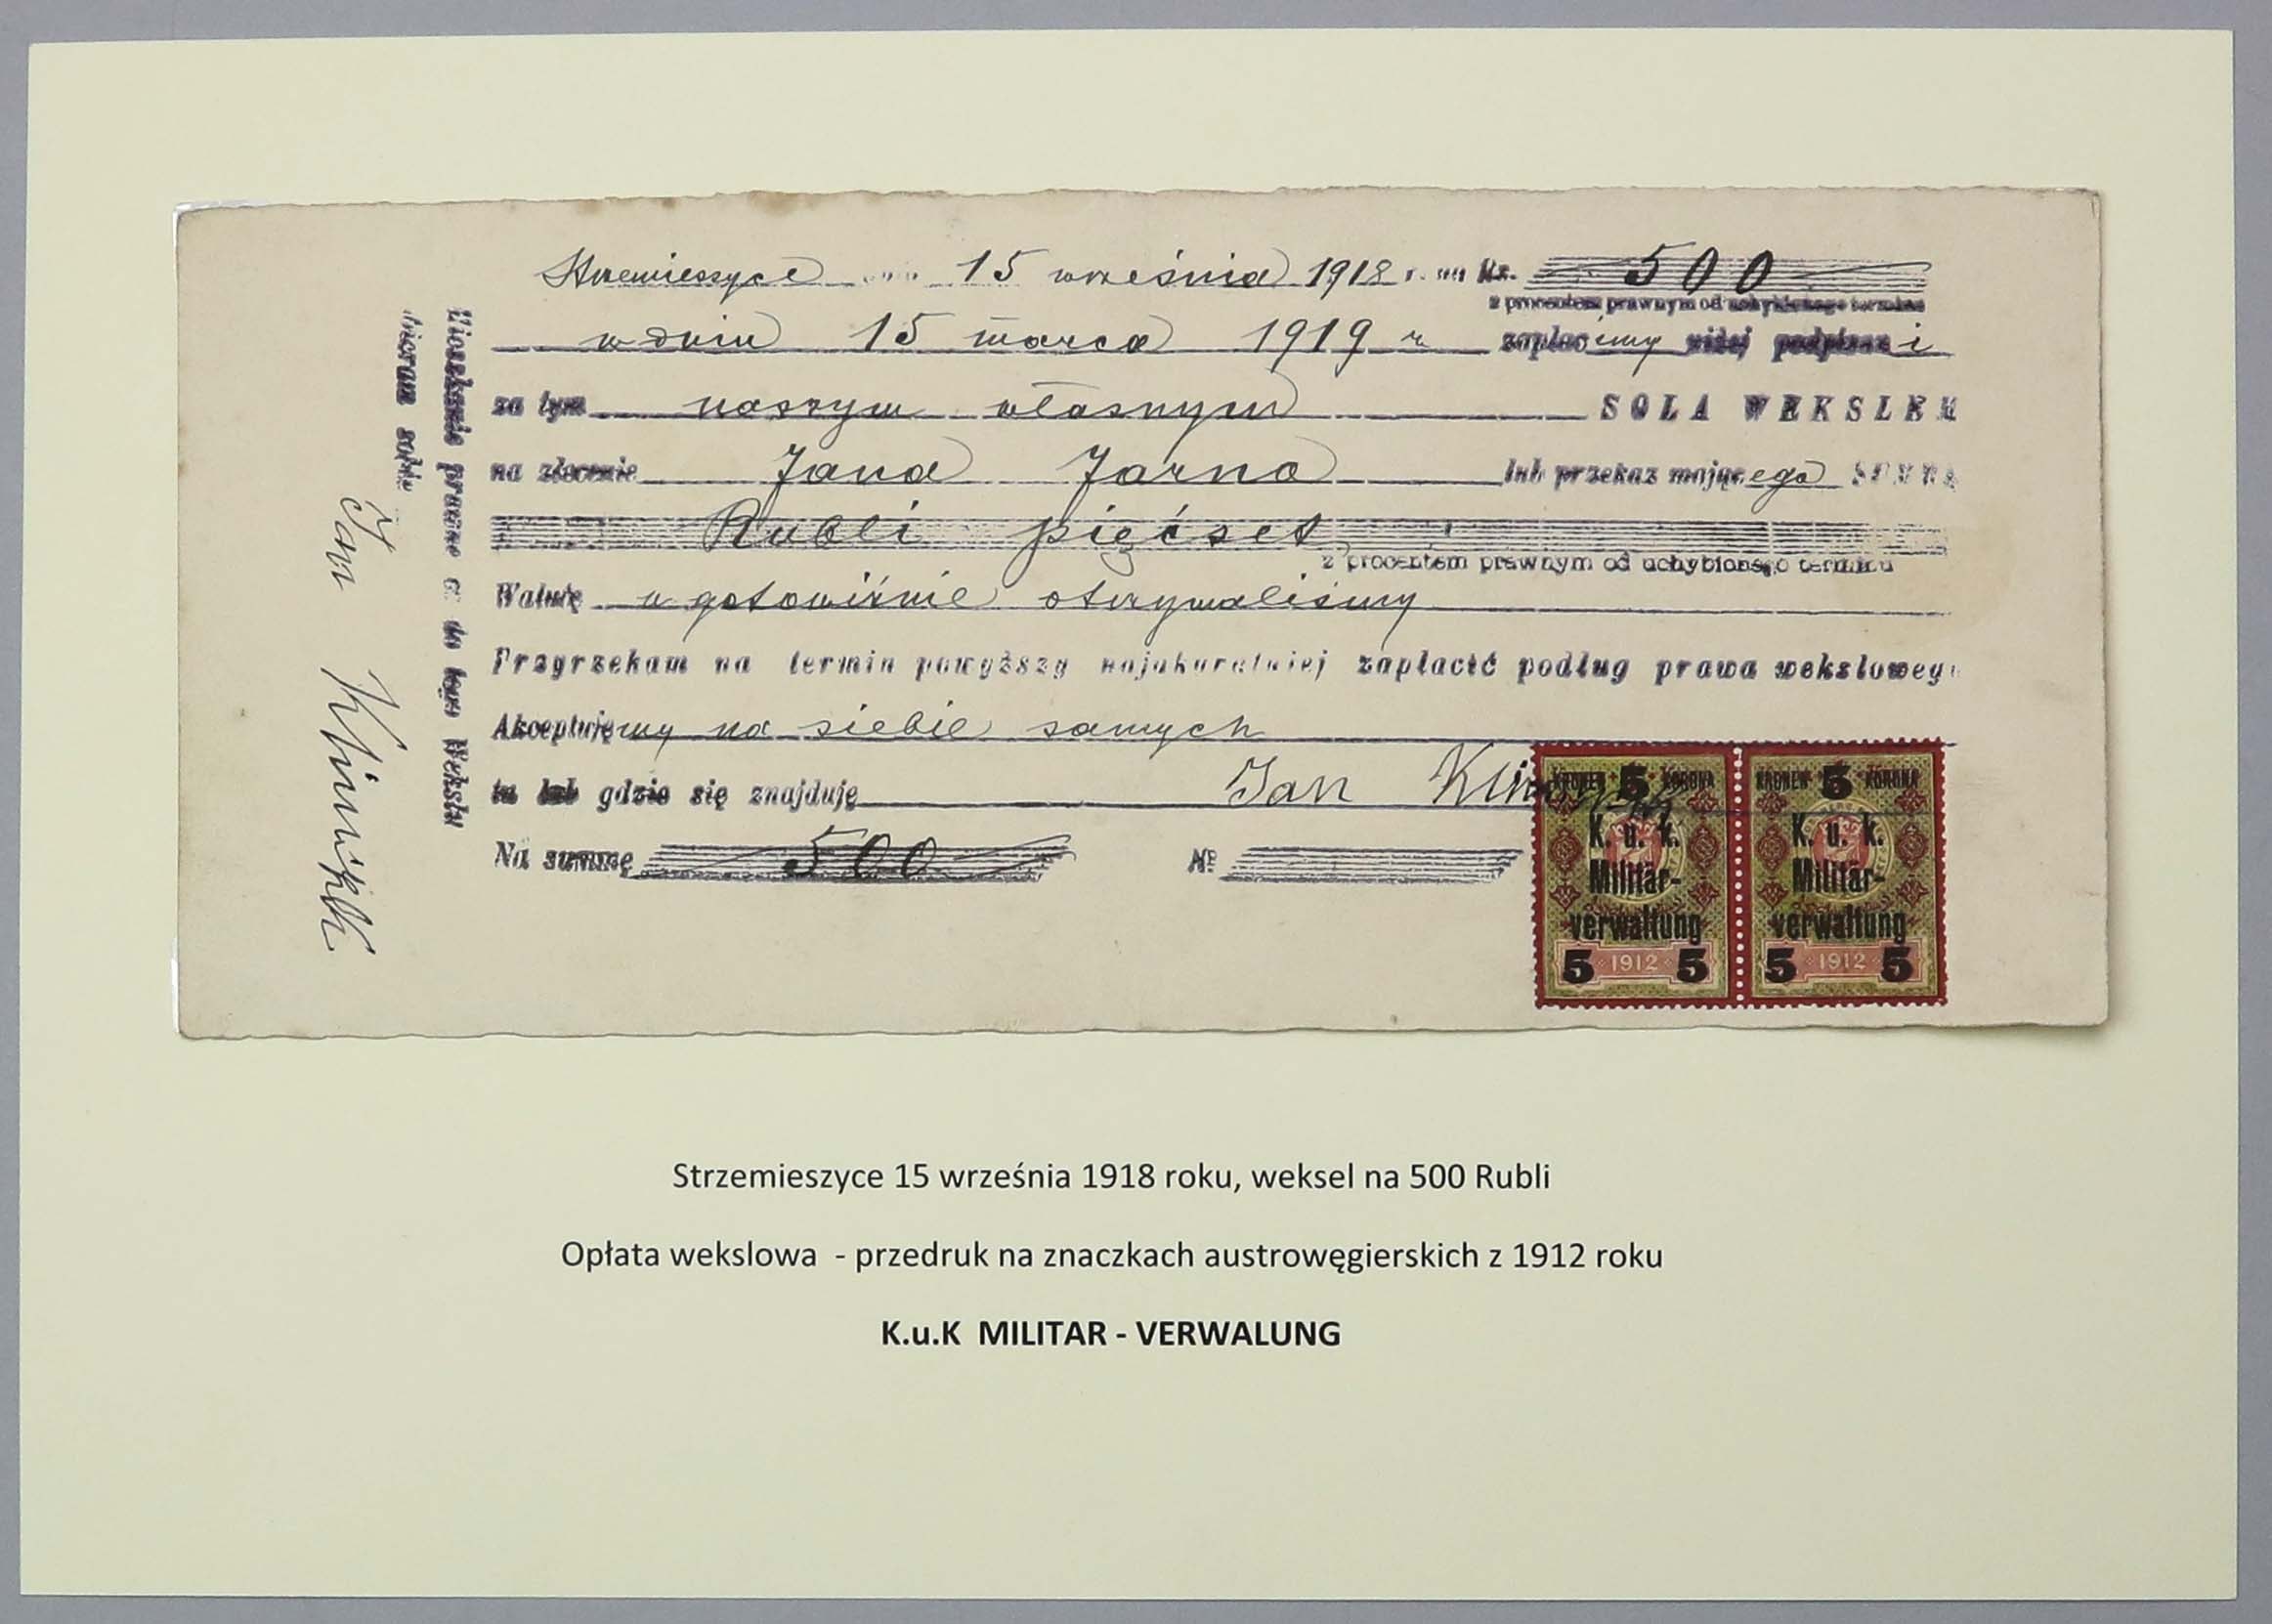 Strzemieszyce dnia 15 września 1918 r. na Rs. 500
z procentem prawnym od uchybionego terminu
w dniu 15 marca 1919 r zapłacimy niżej podpisani
za tym naszym własnym SOLA WEKSLEM
na zlecenie Jana Jarno lub przekaz mającego
Rubli pięćset
z procentem prawnym od uchybionego terminu
Walutę w gotowiźnie otrzymaliśmy
Przyrzekam na termin powyższy najakuratniej zapłacić podług prawa wekslowego
Akceptujemy na siebie samych
tu lub gdzie się znajduję Jan
Na summę 500 №
prawne do tego Wekslu
sobie
Jan
KRONEN 5 KORONA
K. u. k.
Militär-
verwaltung
5 1912 5
KRONEN 5 KORONA
K. u. k.
Militär-
verwaltung
5 1912 5
Strzemieszyce 15 września 1918 roku, weksel na 500 Rubli
Opłata wekslowa - przedruk na znaczkach austrowęgierskich z 1912 roku
K.u.K MILITAR - VERWALUNG